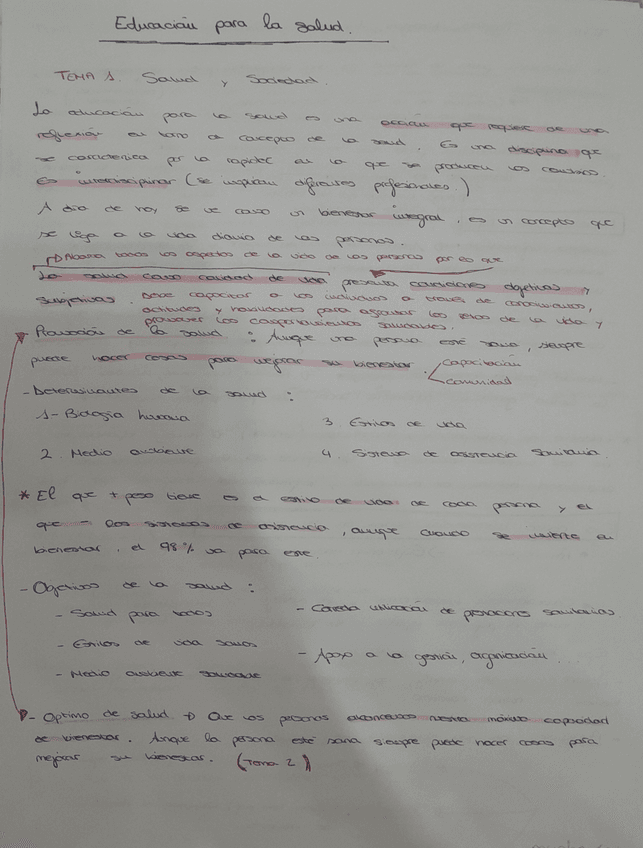 Educación para la salud.
TEMA 1. Salud y Sociedad.
La educación para la salud es una acción que requiere de una
reflexión en torno a concepto de la salud. Es una disciplina que
se caracteriza por la rapidez en la que se producen los cambios.
Es interdisciplinar (se implican diferentes profesionales.)
A día de hoy, se ve como un bienestar integral, es un concepto que
se liga a la vida diaria de las personas.
Abarca todos los aspectos de la vida de las personas por eso que
La salud como calidad de vida presenta condiciones objetivas y
subjetivas. Debe capacitar a los individuos a través de conocimientos,
actitudes y habilidades para afrontar los retos de la vida y
promover los comportamientos saludables.
Promoción de la salud : Aunque una persona esté sana, siempre
puede hacer cosas para mejorar su bienestar. Capacitación
Comunidad
- Determinantes de la salud :
1- Biología humana
3. Estilos de vida
2. Medio ambiente
4. Sistema de asistencia sanitaria.
* El que + peso tiene es el estilo de vida de cada persona y el
que - los sistemas de asistencia, aunque cuando se invierte en
bienestar, el 98% va para este.
- Ogetivos de la salud :
- Salud para todos
- Correcta utilización de prestaciones sanitarias
- Estilos de vida sanos
- Apoyo a la gestión, organización.
- Medio ambiente saludable
- Optimo de salud → Que las personas alcancemos nuestra máxima capacidad
de bienestar. Aunque la persona esté sana siempre puede hacer cosas para
mejorar su bienestar. (Tema 2)